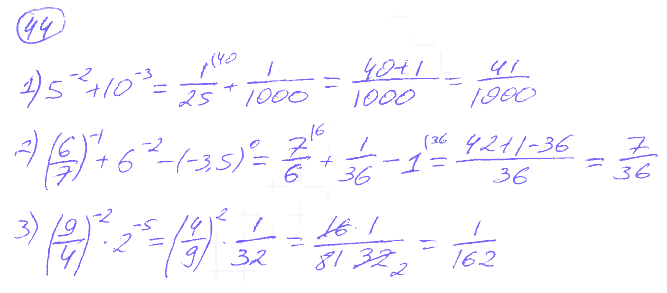 44
1) 5^-2 + 10^-3 = 1/25 (40 + 1/1000 = 40+1/1000 = 41/1000
2) (6/7)^-1 + 6^-2 - (-3,5)^0 = 7/6 (6 + 1/36 - 1 (36 = 42+1-36/36 = 7/36
3) (9/4)^-2 · 2^-5 = (4/9)^2 · 1/32 = 16·1/81·32 2 = 1/162